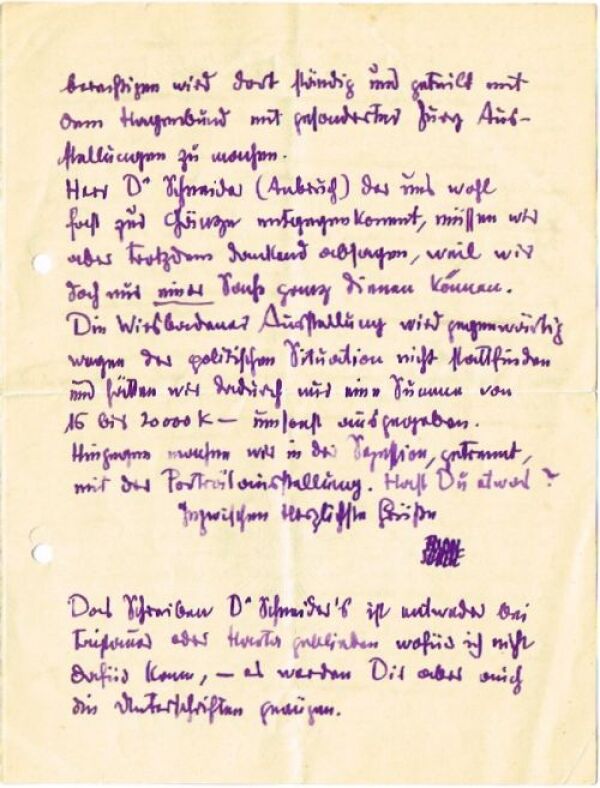 berechtigen wird dort ständig und geteilt mit
dem Hagenbund mit gesonderter Jury Aus-
stellungen zu machen.
Herr Dr Schneider (Anbruch) der uns wohl
fast zur Gänze entgegenkommt, müssen wir
aber trotzdem dankend absagen, weil wir
doch nur einer Sache ganz dienen können.
Die Wiesbadener Ausstellung wird gegenwärtig
wegen der politischen Situation nicht stattfinden
und hätten wir dadurch nur eine Summe von
15 bis 20000 K — umsonst ausgegeben.
Hingegen machen wir in der Sezession, getrennt,
mit der Porträtausstellung. Hast Du etwas?
Inzwischen Herzlichste Grüße

Das Schreiben Dr Schneider's ist entweder bei
oder Harta geblieben wofür ich nicht
dafür kann, — es werden Dir aber auch
die Unterschriften genügen.